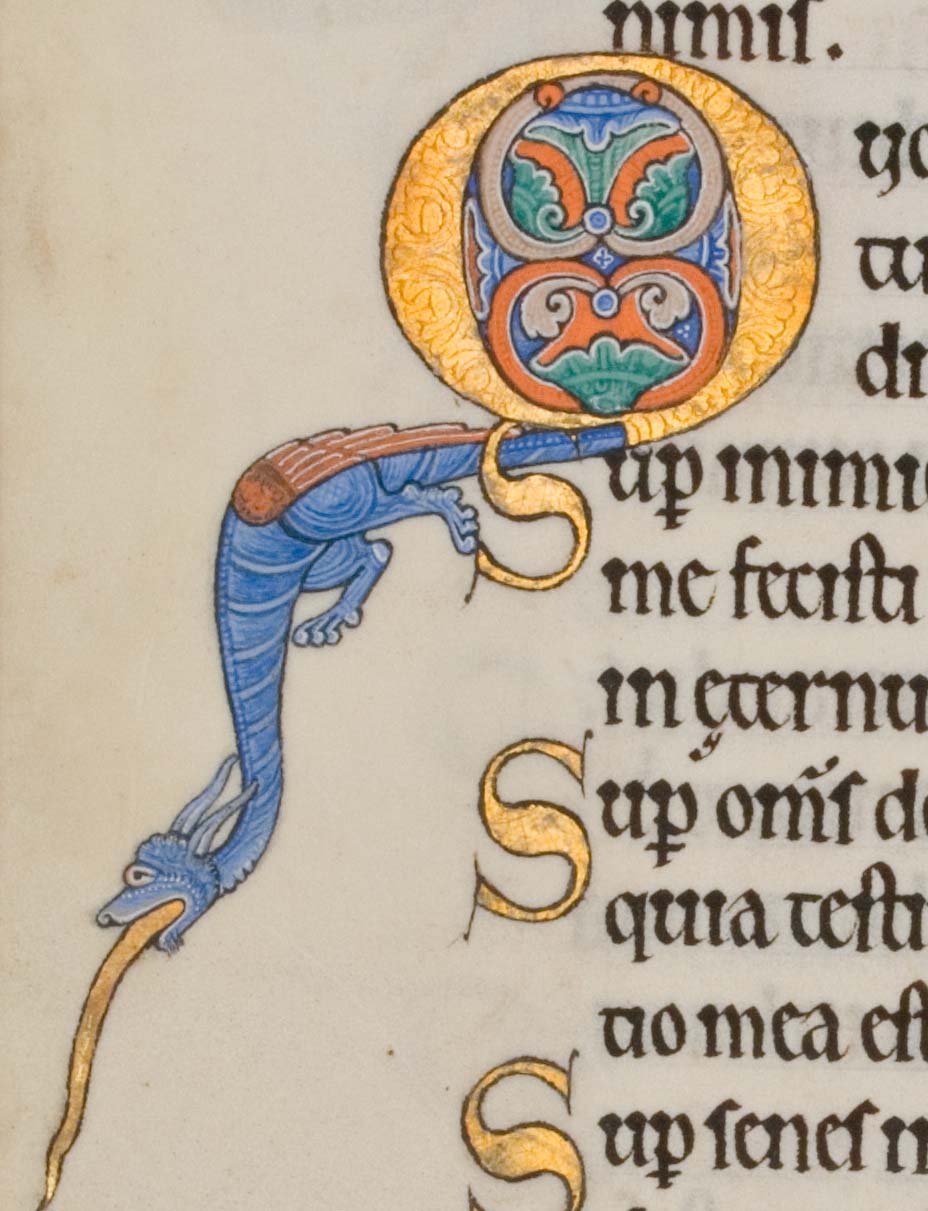 nimiſ.
Quo
tu
di
Suꝑ inimi
me feciſti
in ęternu
Suꝑ om̅ſ do
quia teſti
tio mea eſt
Suꝑ ſeneſ in